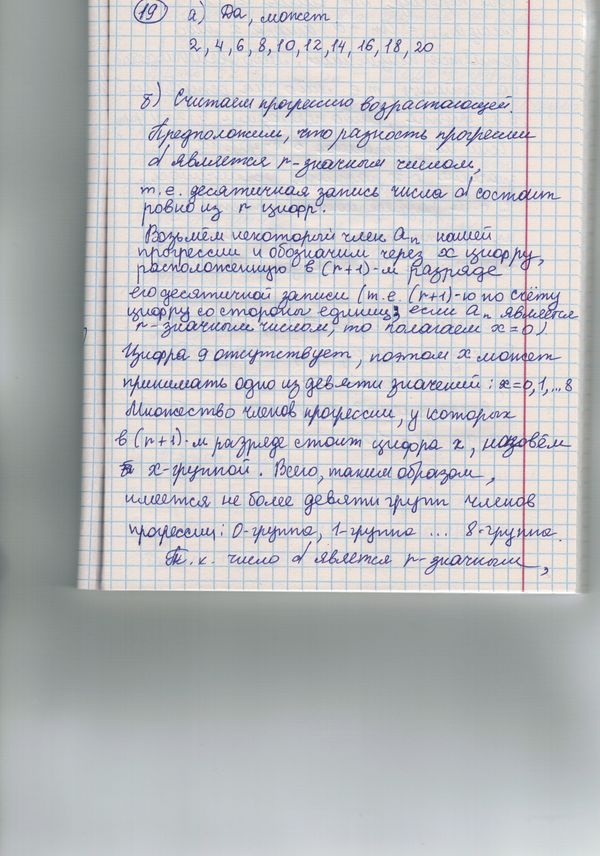 19 а) Да, может.
2, 4, 6, 8, 10, 12, 14, 16, 18, 20
б) Считаем прогрессию возрастающей.
Предположим, что разность прогрессии
d является r-значным числом,
т.е. десятичная запись числа d состоит
ровно из r цифр.
Возьмём некоторый член aₙ нашей
прогрессии и обозначим через x цифру,
расположенную в (r+1)-м разряде
его десятичной записи (т.е. (r+1)-ю по счёту
цифру со стороны единиц; если aₙ является
r-значным числом, то полагаем x=0)
Цифра 9 отсутствует, поэтом x может
принимать одно из девяти значений: x=0,1,...8
Множество членов прогрессии, у которых
в (r+1)-м разряде стоит цифра x, назовём
x-группой. Всего, таким образом,
имеется не более девяти групп членов
прогрессии: 0-группа, 1-группа ... 8-группа.
Т.к. число d является r-значным,